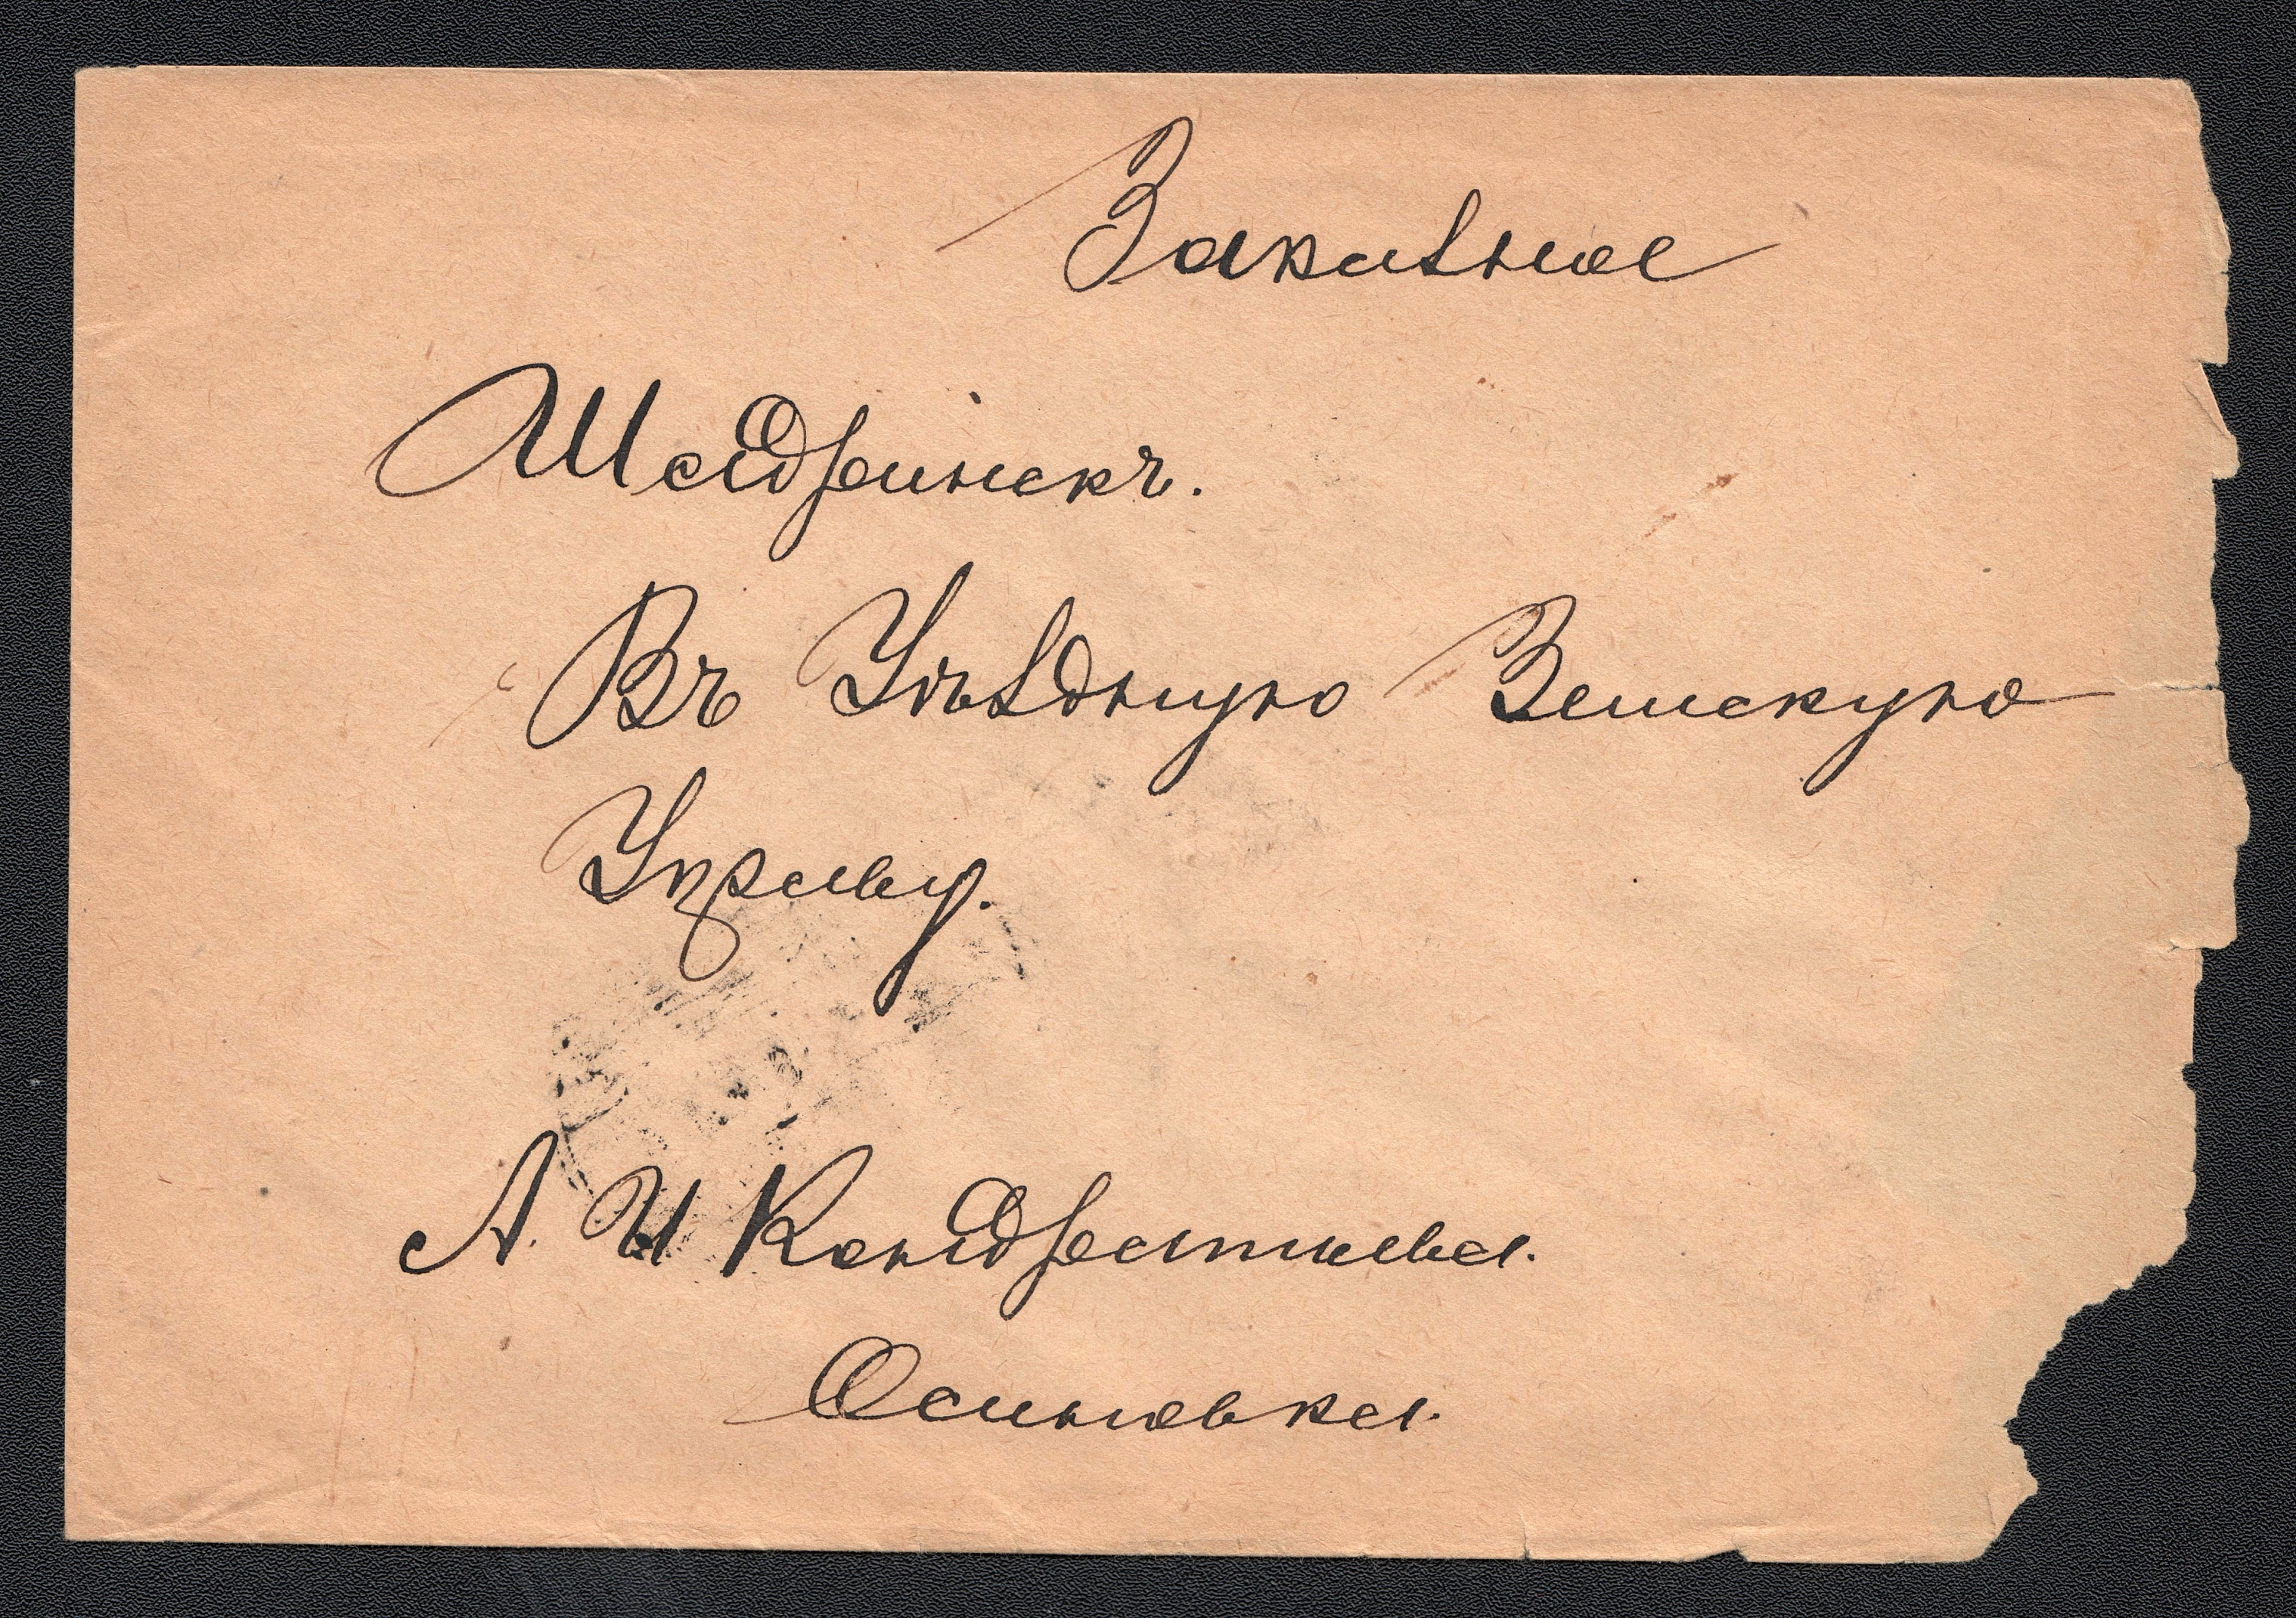 Заказное
Шадринскъ.
Въ Уѣздную Земскую
Управу.
А. И Кондратьева.
Осиновка.